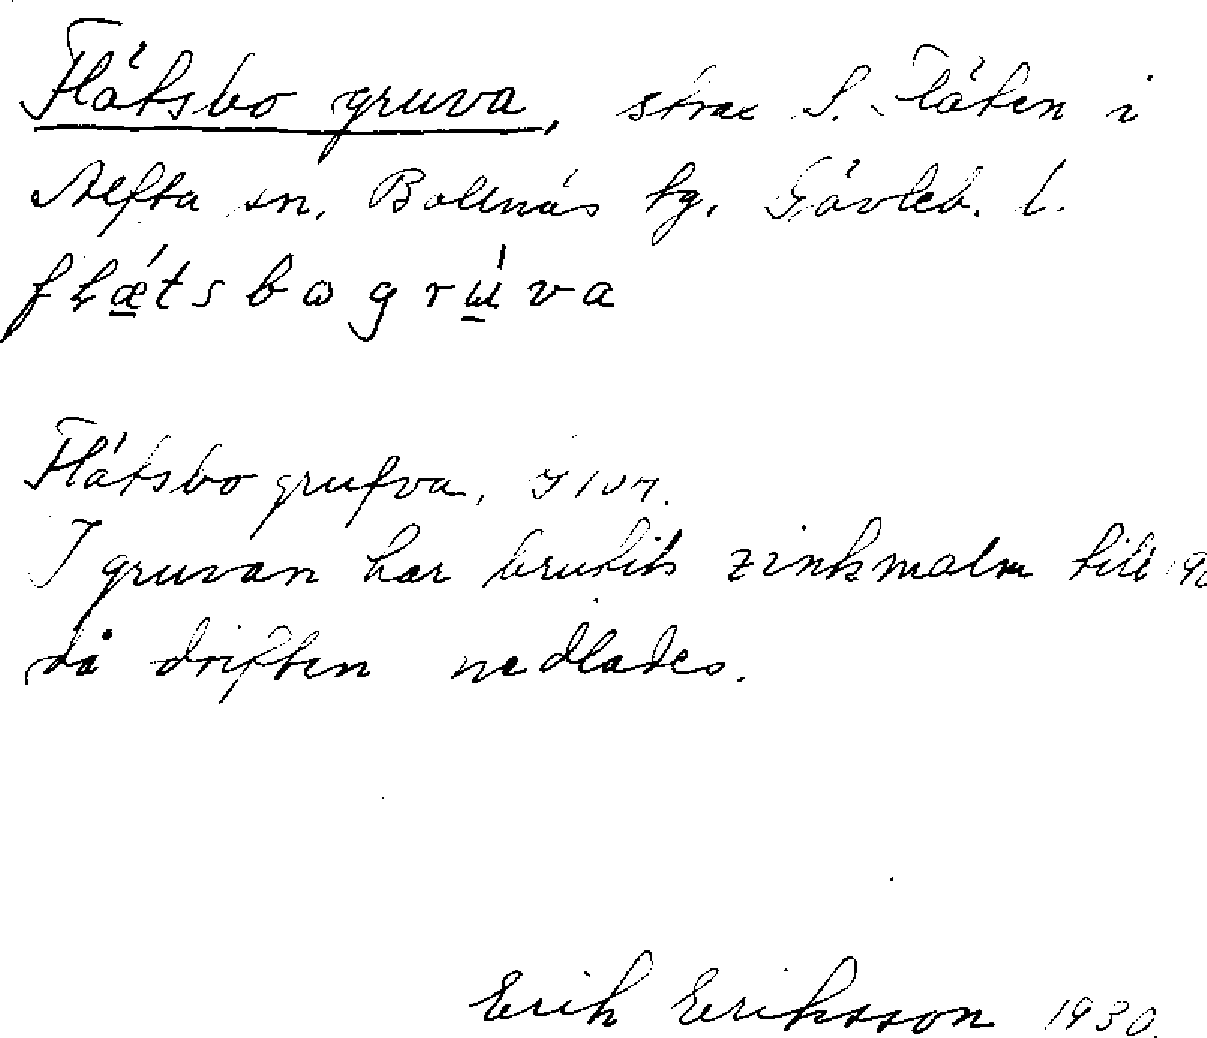 Flätsbo gruva, strax S. Fläten i
Alfta sn, Bollnäs tg, Gävleb. l.
flǽ̲tsbωgrɯ̲́va
Flätsbo grufva,
I gruvan har brutits zinkmalm till
då driften nedlades.
Erik Eriksson 1930.